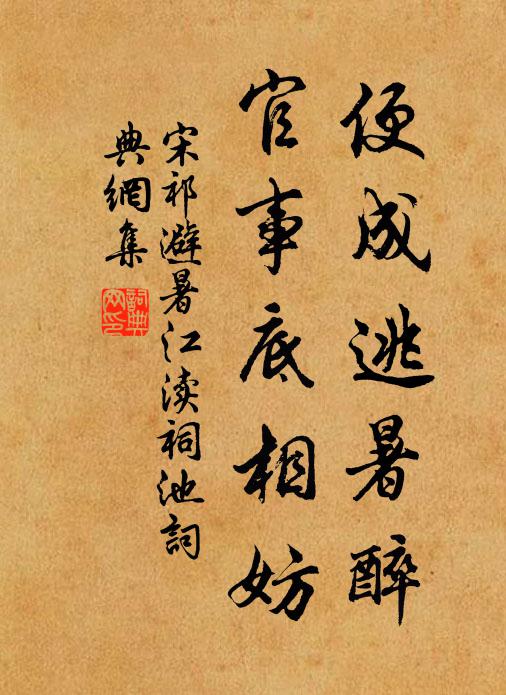 便成逃暑醉
官事底相妨
宋祁避暑江渎祠池詞
典網集
詞典網印